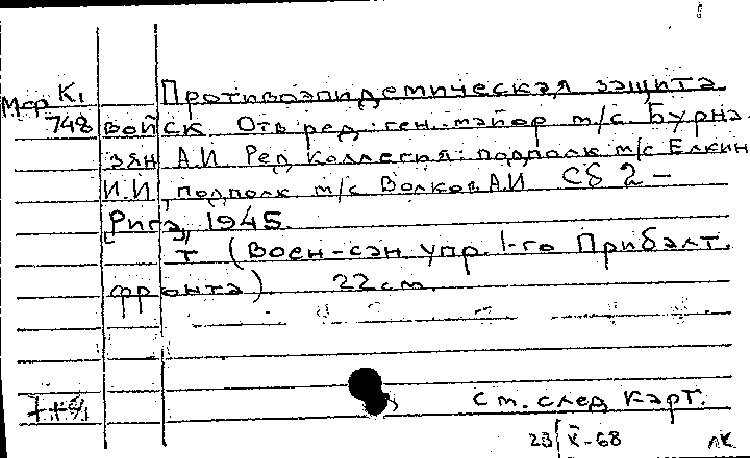 Мср К₁ Противоэпидемическая защита
748 войск. Отв. ред.: ген.-майор м/с Бурна-
зян А.И. Ред. коллегия: подполк м/с Елкин
И.И., подполк м/с Волков А.И Сб 2 –
[Рига], 1945.
т (Воен-сан упр. 1-го Прибалт.
фронта) 22 см.
См. след карт.
23/X-68 ЛК